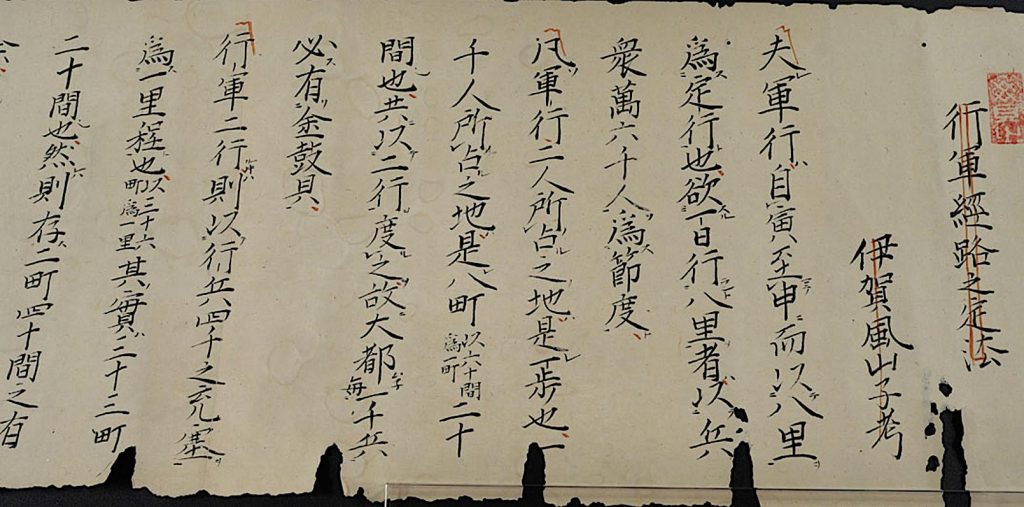 行軍經路之定法
伊賀風山子考
夫軍行自寅至申而以八里
為定行也欲一日行八里者以兵
衆萬六千人為節度
凡軍行二人所占之地是一歩也一
千人所占之地是八町以六十間為町二十
間也共以二行度之故大都毎一千兵
必有金鼓具
行軍二行則以行兵四千之充塞
為一里程也以三十六町為一里其實三十三町
二十間也然則存二町四十間之有